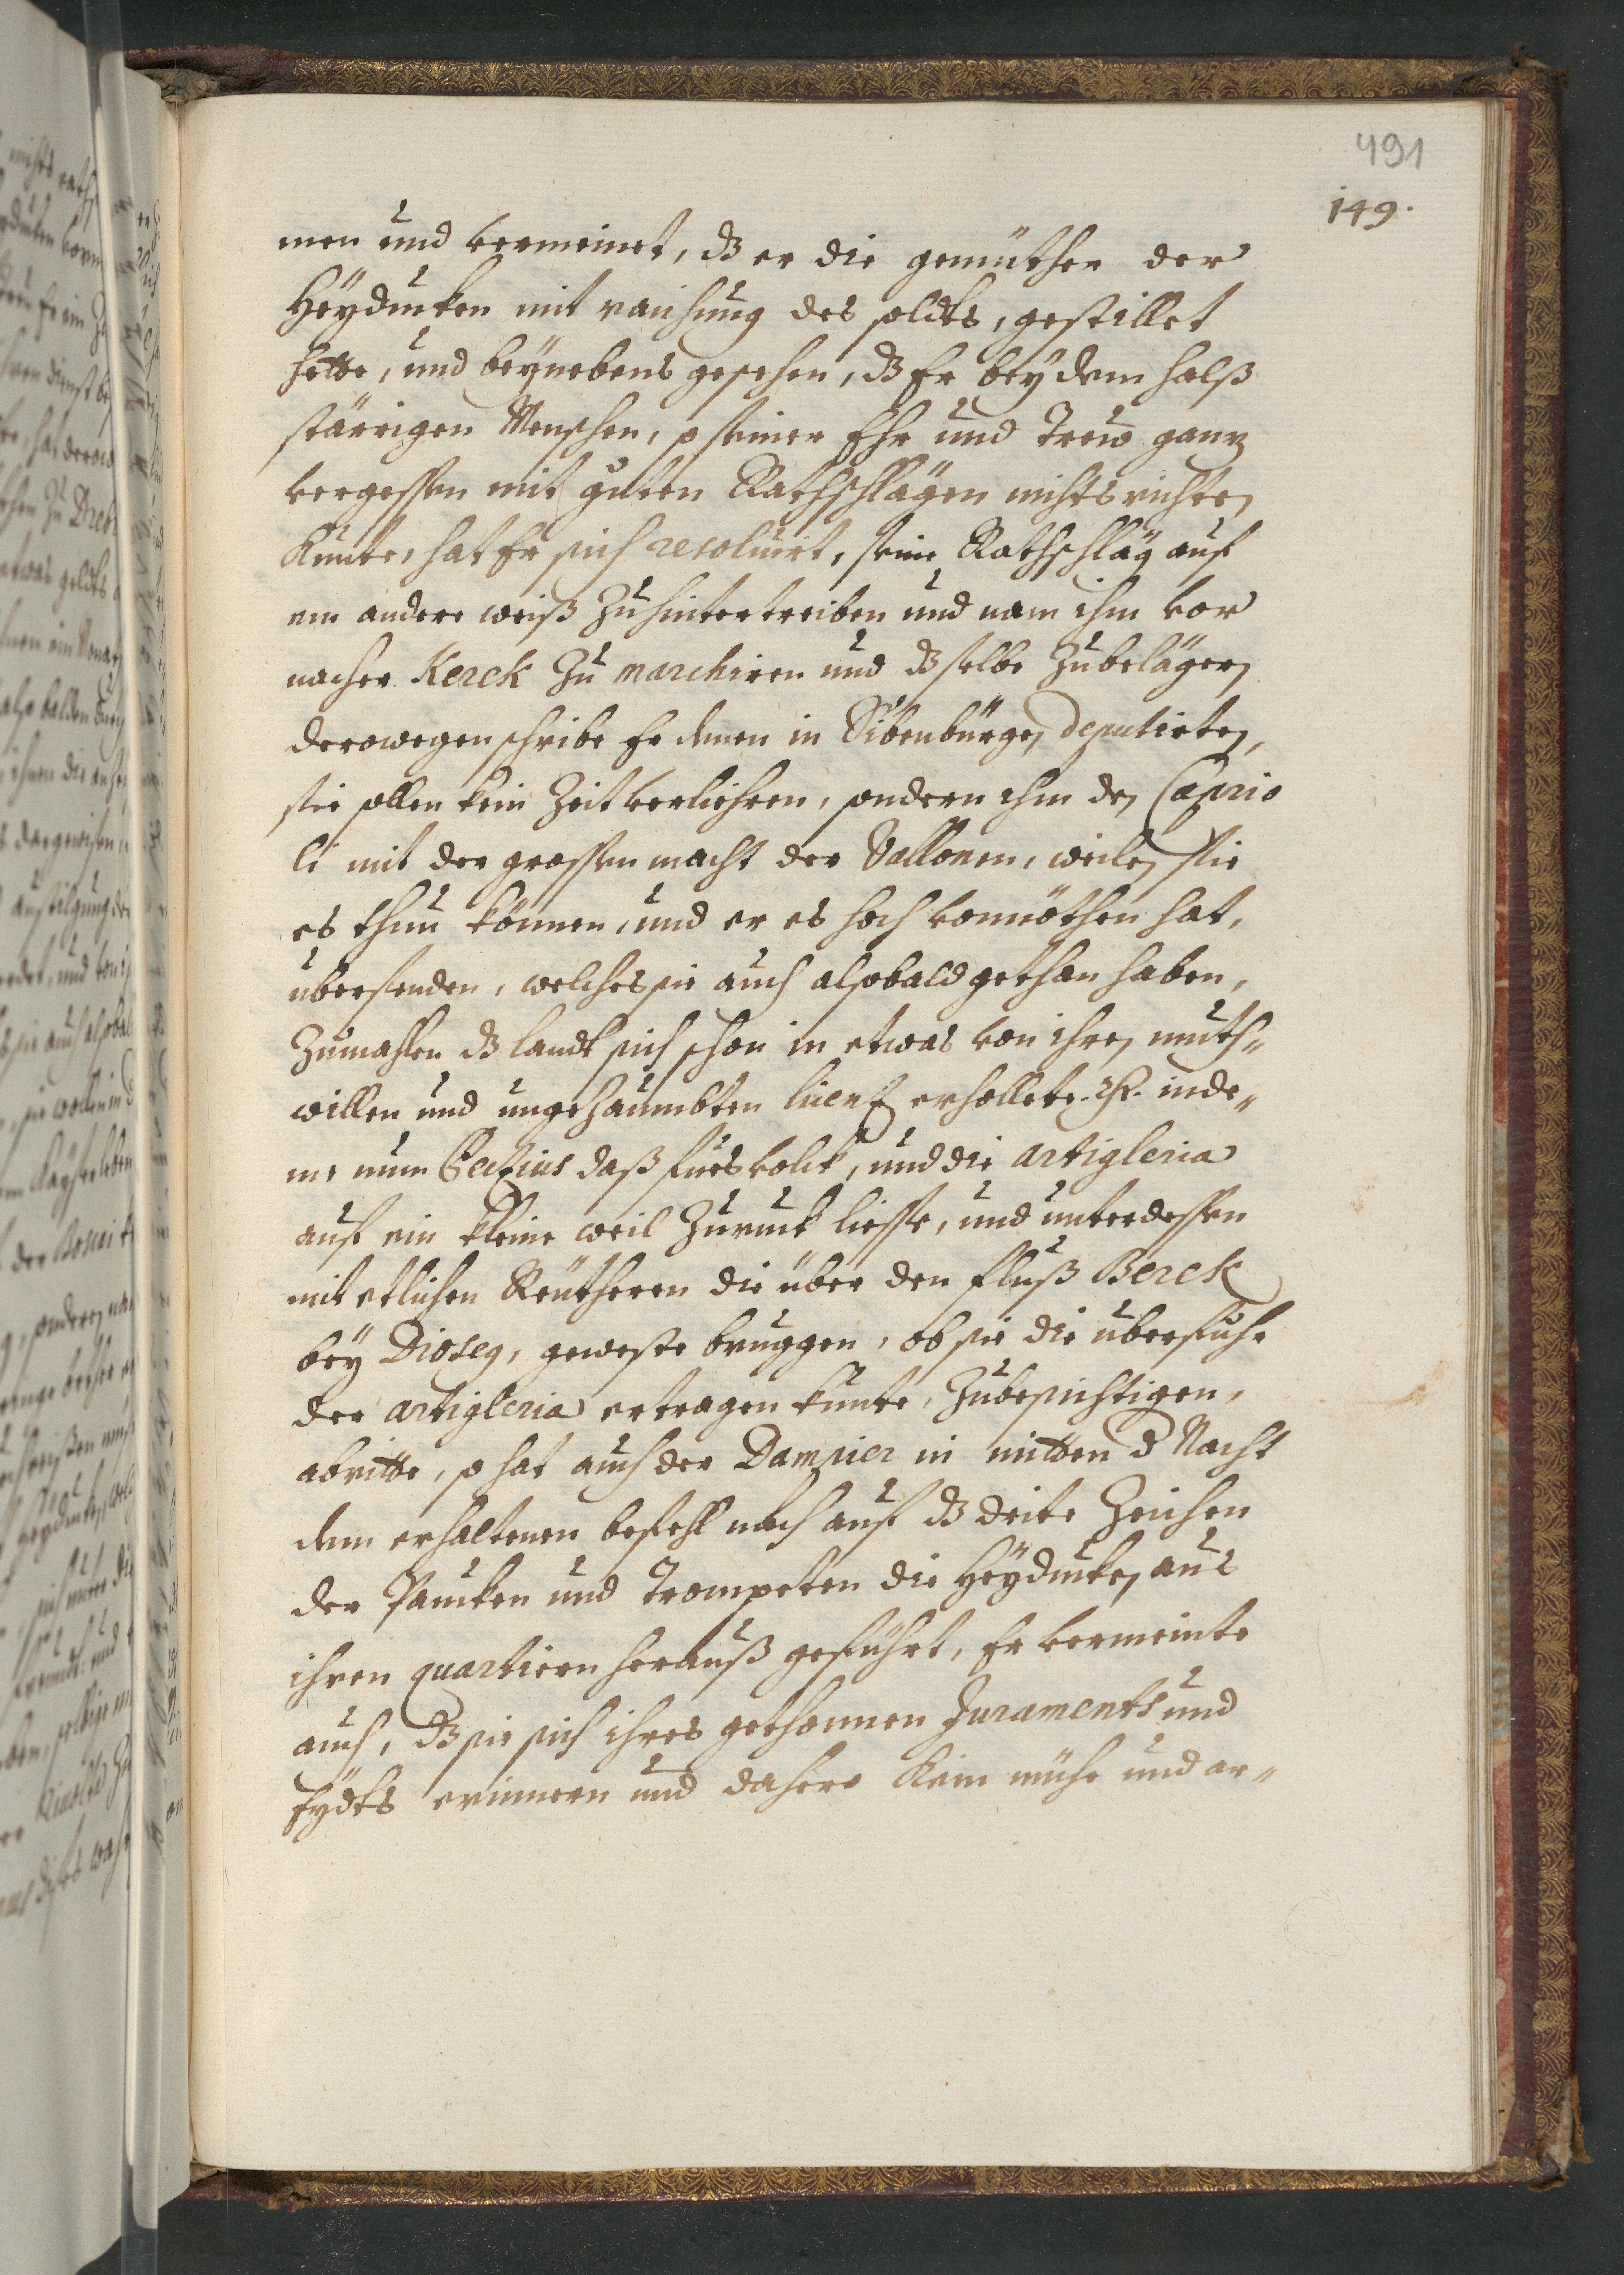 491
149.
men und vermeinet, dz er die gemüther der
Heyducken mit raichung des soldts, gestillet
hette, und beynebens gesehen, dz Er bey dem halß
stärrigen Menschen, so seiner Ehr und Trew ganz
vergessen mit guten Rathschlägen nichts richten
kunte, hat Er sich resoluirt, seine Rathschläg auf
ein andere weiß zu hintertreiben und nam ihm vor
nacher Kerek zu marchiren und dz selbe zu belägern
derowegen schribe Er denen in Sibenbürgen deputirten,
sie sollen kein Zeit verliehren, sondern ihm den Caprio
li mit der grossen macht der Vallonen, weilen sie
es thun können, und er es hoch vonnöthen hat,
übersenden, welches sie auch alsobald gethan haben,
Zumahlen dz landt sich schon in etwas von ihren muth-
willen und ungezäumbten licenz erhollete. inde-
me nun Belzius daß fues volck, und die artigleria
auf ein kleine weil zuruck liesse, und unterdessen
mit etlichen Reutheren die über den fluß Berek
bey Dioseg, geweste bruggen, ob sie die überfuhr
der artigleria ertragen kunte, zu besichtigen,
abritte, so hat auch der Dampier in mitten d Nacht
dem erhaltenen befehl nach auf dz drite Zeichen
der Paucken und Trompeten die Heyducken aus
ihren quartiren herauß geführt, Er vermeinte
auch, dz sie sich ihres gethonnen Juraments und
Eydts erinnern und dahero kein mühe und ar-